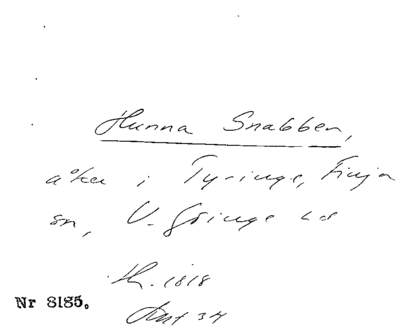 Hunna Snabben,
åker i Tyringe, Finja
sn, V. Göinge hd
Nr 8185.